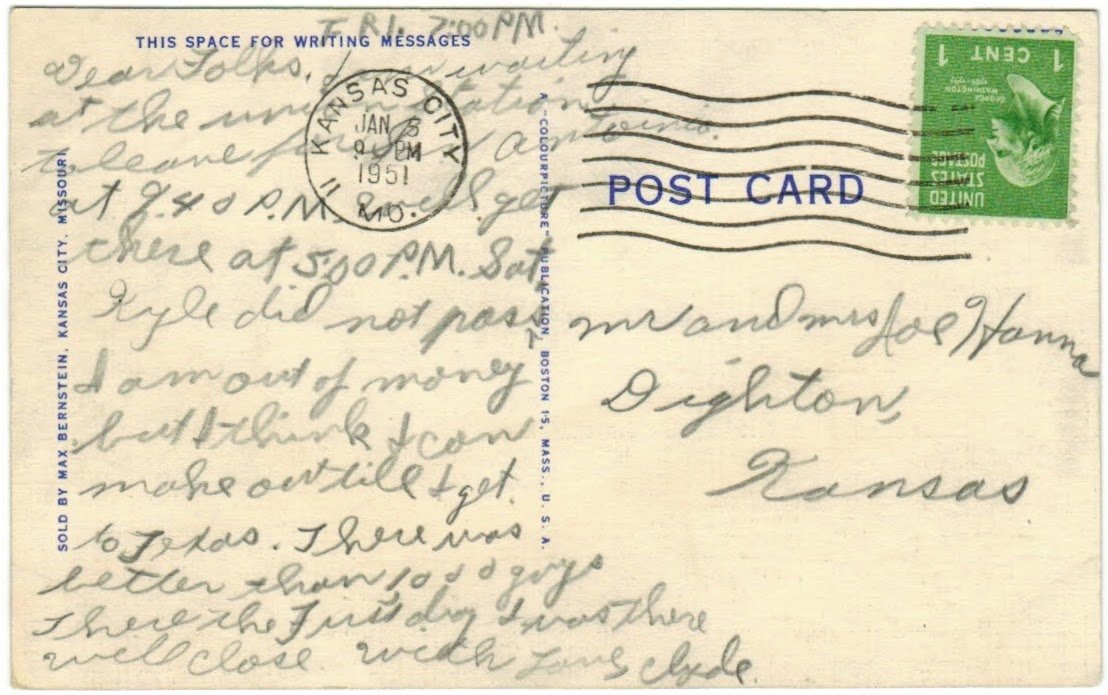 FRI. 7:00 PM.
THIS SPACE FOR WRITING MESSAGES
Dear Folks, I am waiting
at the union station
to leave for San Antonio.
at 9.40 P.M. I will get
there at 5:00 P.M. Sat.
Kyle did not pass
I am out of money
but I think I can
make out till I get
to Texas. There was
better than 1000 guys
there the First day I was there
will close. With Love, Clyde.
SOLD BY MAX BERNSTEIN, KANSAS CITY, MISSOURI
A "COLOURPICTURE" PUBLICATION, BOSTON 15, MASS., U. S. A.
KANSAS CITY
JAN 5
9 PM
1951
11 MO.
POST CARD
UNITED
STATES
POSTAGE
GEORGE
WASHINGTON
1 CENT 1
Mr and Mrs Joe Hanna
Dighton,
Kansas